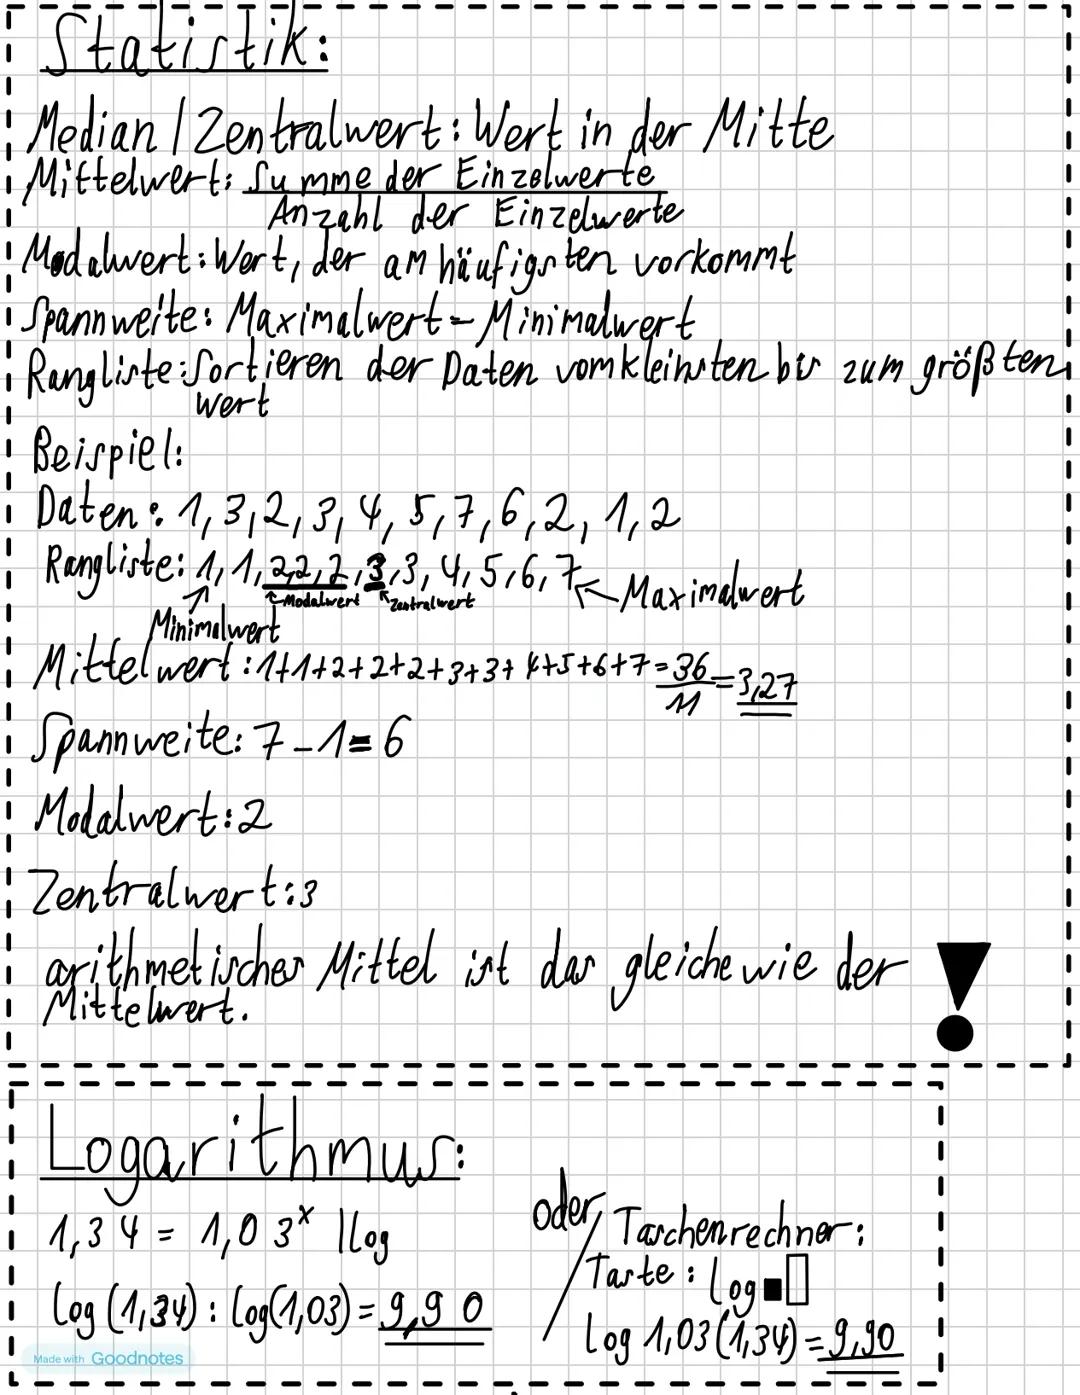 Statistik:
Median / Zentralwert: Wert in der Mitte
Mittelwert: Summe der Einzelwerte
Anzahl der Einzelwerte
Modalwert: Wert, der am häufigsten vorkommt
Spannweite: Maximalwert - Minimalwert
Rangliste: Sortieren der Daten vom kleinsten bis zum größten
Wert
Beispiel:
Daten: 1, 3, 2, 3, 4, 5, 7, 6, 2, 1, 2
Rangliste: 1, 1, 2, 2, 2, 3, 3, 4, 5, 6, 7 ← Maximalwert
Modalwert Zentralwert
Minimalwert
Mittelwert: 1+1+2+2+2+3+3+4+5+6+7 = 36 = 3,27
11
Spannweite: 7 - 1 = 6
Modalwert: 2
Zentralwert: 3
arithmetisches Mittel ist das gleiche wie der
Mittelwert.
Logarithmus:
1,34 = 1,03ˣ | log
log (1,34) : log(1,03) = 9,90
oder / Taschenrechner:
Taste: log■□
log 1,03 (1,34) = 9,90
Made with Goodnotes